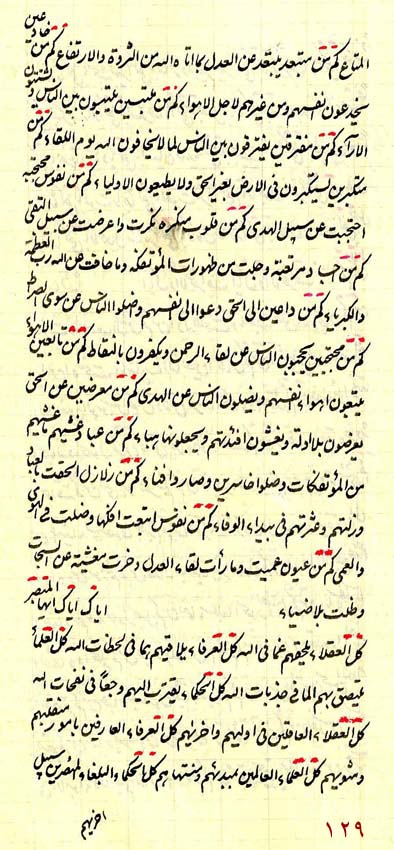 المتاع كم من مبتعد يبتعد عن العدل بما اتاه الله من الثروة والارتفاع كم من خادعين
يخدعون انفسهم ومن غيرهم لاجل الاهواء كم من يلتبسون بين الناس
الارآء كم من مفترقين يفترقون بين الناس لما لا يخافون الله يوم اللقاء كم من
متكبرين يستكبرون فى الارض بغير الحق ولا يطيعون الاولياء كم من نفوس محتجبة
احتجبت عن سبيل الهدى كم من قلوب منكره نكرت واعرضت عن سبيل التقى
كم من مرتعبة وجلت من ظهورات المؤتفكه وما خافت عن الله رب العظمة
والكبرياء كم من داعين الى الحق دعوا الى نفسهم وضلوا الناس عن سوى الصراط
كم من محتجبين يحجبون الناس عن لقاء الرحمن ويكفرون بالنقاط كم من تابعين الاهواء
يتبعون اهواء نفسهم ويضلون الناس عن الهدى كم من معرضين عن الحق
يعرضون بلا ادلة ويغشون افئدتهم ويجعلونها هباء كم من عباد غشيهم غشيهم
من المؤتفكات وضلوا خاسرين وصاروا فناء كم من زلازل الحقت بالعباد
وزلتهم وعثرتهم فى بيداء الوفاء كم من نفوس اتبعت افكها وضلت فى الهوى
والعمى كم من عيون عميت وما رأت لقاء العدل وخرت مغشية عن السبحات
وظلت بلا ضياء اياك اياك ايها المتبصر
كل العقلاء يلحقهم غما فى الله كل العرفاء يلاقيهم هما فى لحظات الله كل العلماء
يلتصق بهم الما فى جذبات الله كل الحكماء يقترب اليهم وجعا فى نفحات الله
كل العقلاء العاقلين فى اوليهم واخريهم كل العرفاء العارفين بامور منقلبهم
ومثويهم كل العلماء العالمين بمبدئهم ومنتهاهم كل الحكماء والبلغاء المبصرين سبيل
اخريهم
١٢٩